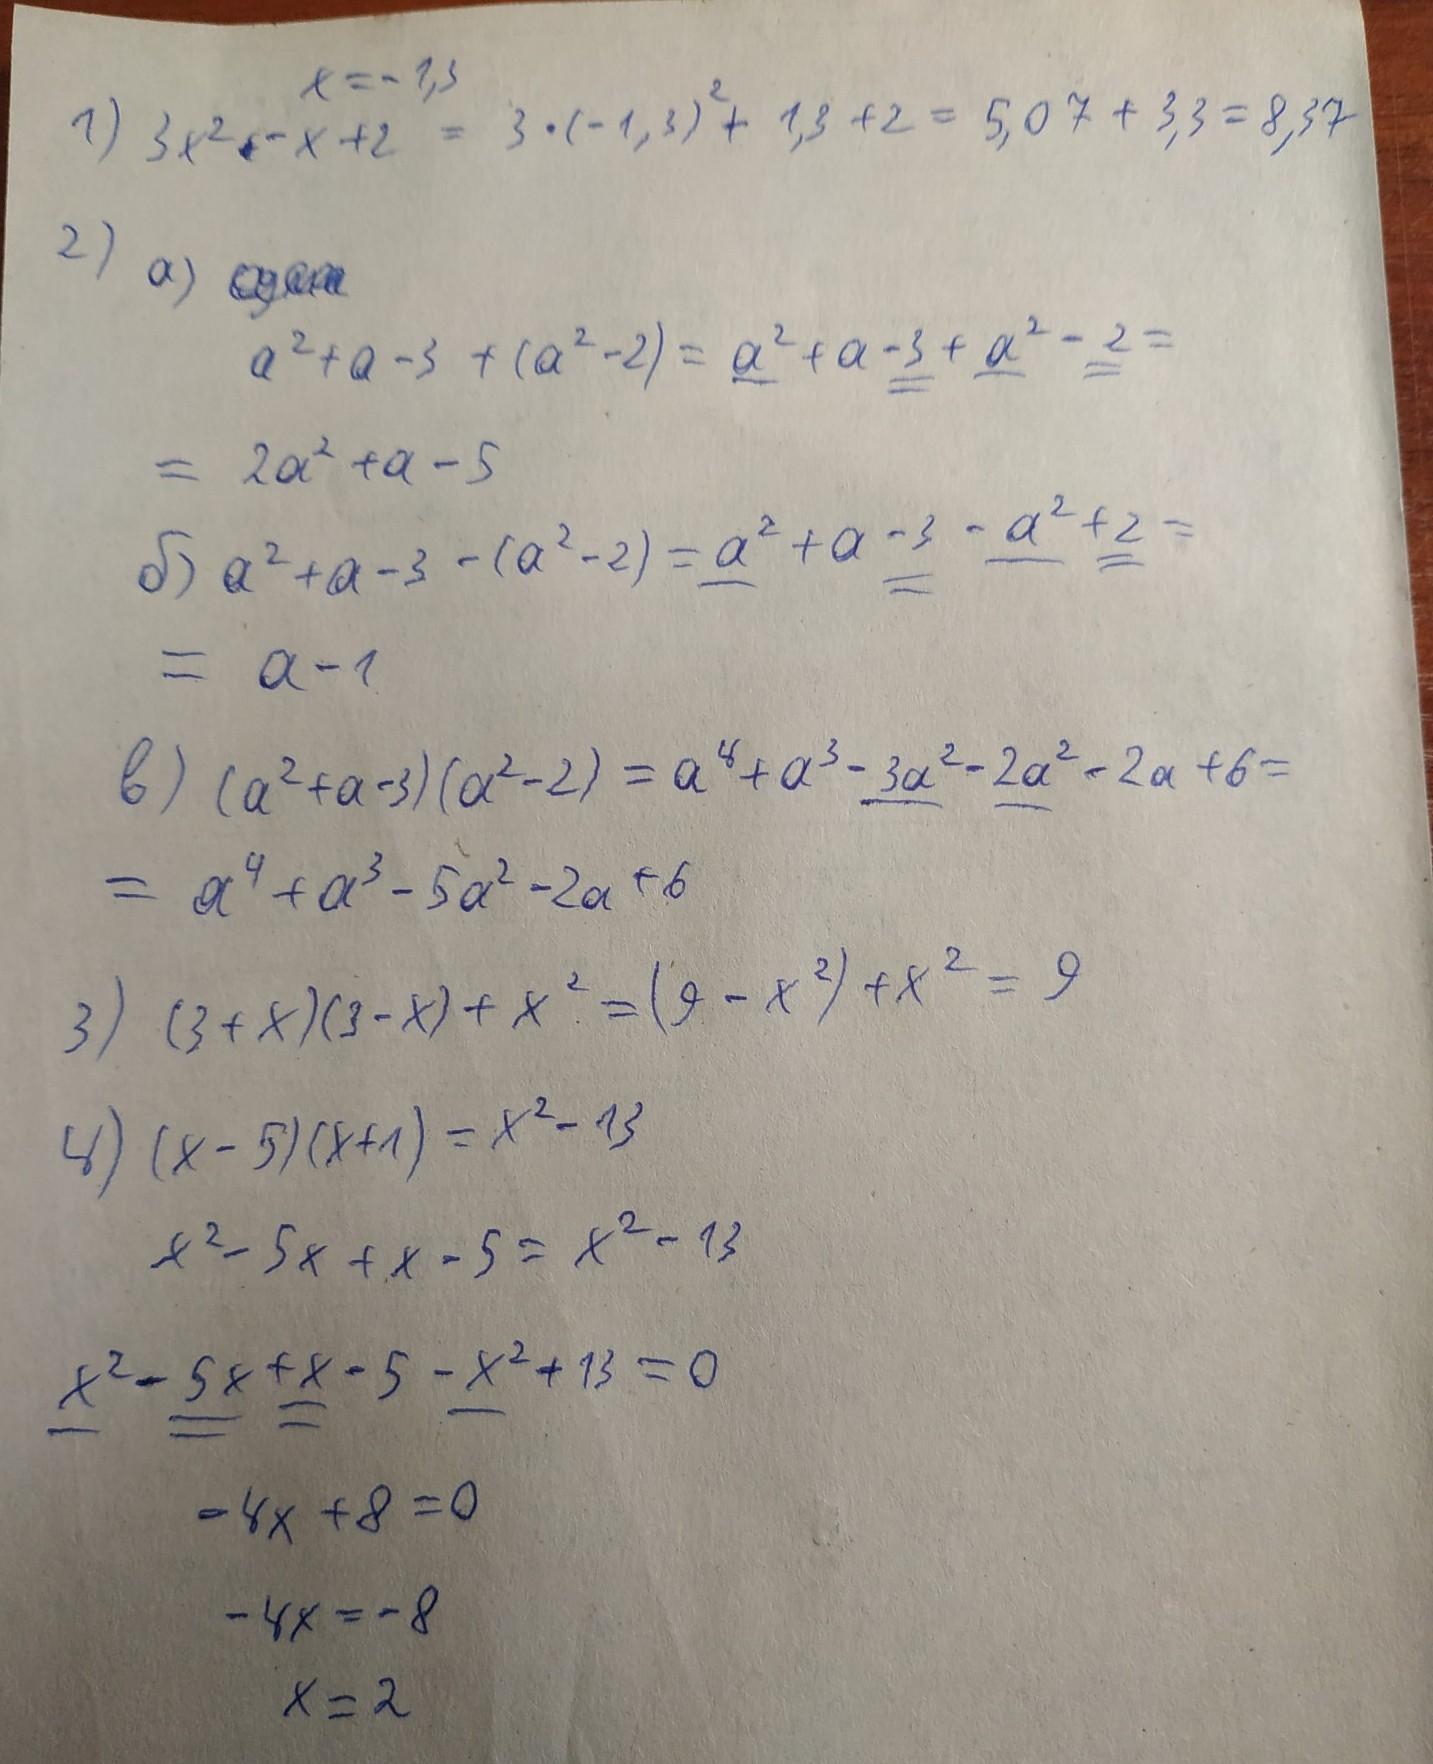 x=-1,3
1) 3x² - x + 2 = 3·(-1,3)² + 1,3 + 2 = 5,07 + 3,3 = 8,37
2) а)
a² + a - 3 + (a² - 2) = a² + a - 3 + a² - 2 =
= 2a² + a - 5
б) a² + a - 3 - (a² - 2) = a² + a - 3 - a² + 2 =
= a - 1
в) (a² + a - 3)(a² - 2) = a⁴ + a³ - 3a² - 2a² - 2a + 6 =
= a⁴ + a³ - 5a² - 2a + 6
3) (3 + x)(3 - x) + x² = (9 - x²) + x² = 9
4) (x - 5)(x + 1) = x² - 13
x² - 5x + x - 5 = x² - 13
x² - 5x + x - 5 - x² + 13 = 0
-4x + 8 = 0
-4x = -8
x = 2